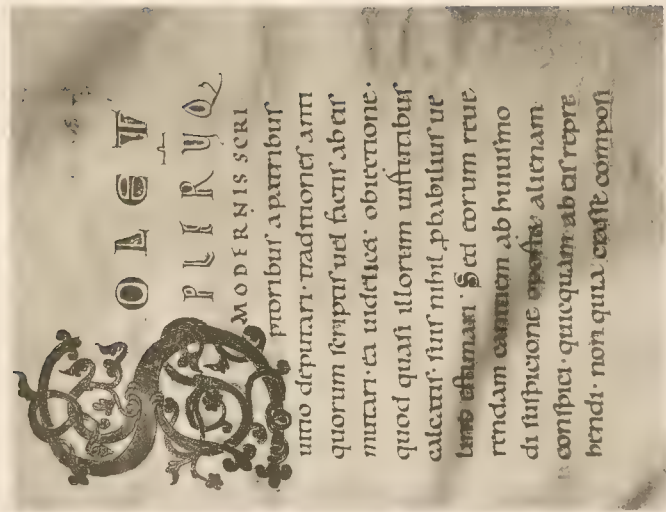 SOLET
PLERUQ
MODERNIS SCRI
ptoribuſ a patribuſ
uitio deputari· traditioneſ anti
quorum ſcriptiſ uel factiſ ab eiſ
mutari· ea uidelicet obiectione·
quod quaſi illorum
calcatiſ· ſuiſ nihil pbabiliuſ ue
eſtimari· Sed eorum reue
rendam ab huiuſmo
di ſuſpicione alienam
conſpici· quicquam ab eiſ repre
hendi· non quia compoſi